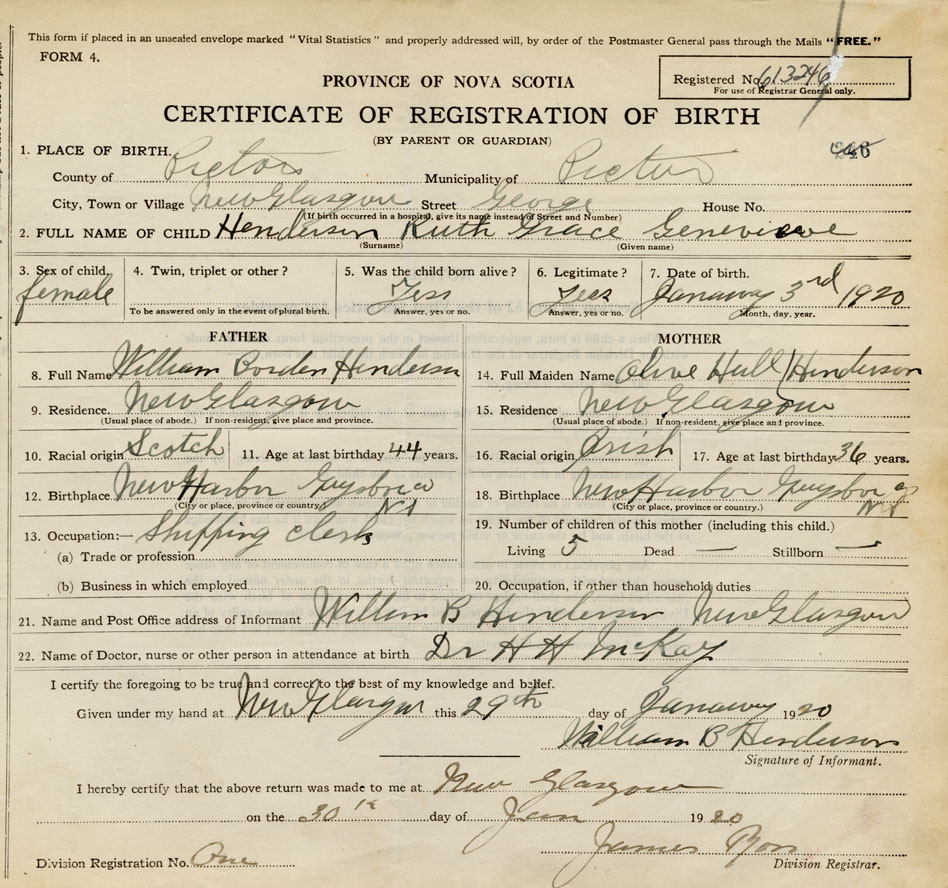 This form if placed in an unsealed envelope marked "Vital Statistics" and properly addressed will, by order of the Postmaster General pass through the Mails "FREE."
FORM 4.
Registered No. 613246
For use of Registrar General only.
PROVINCE OF NOVA SCOTIA
CERTIFICATE OF REGISTRATION OF BIRTH
(BY PARENT OR GUARDIAN)
246
1. PLACE OF BIRTH.
County of Pictou Municipality of Pictou
City, Town or Village New Glasgow Street George House No.
(If birth occurred in a hospital, give its name instead of Street and Number)
2. FULL NAME OF CHILD Henderson Ruth Grace Genevieve
(Surname) (Given name)
3. Sex of child. 4. Twin, triplet or other? 5. Was the child born alive? 6. Legitimate? 7. Date of birth.
female Yess Yees Janawy 3rd 1920
To be answered only in the event of plural birth. Answer, yes or no. Answer, yes or no. Month, day, year.
FATHER MOTHER
8. Full Name William Borden Henderson 14. Full Maiden Name Olive Hull / Henderson
9. Residence. New Glasgow 15. Residence New Glasgow
(Usual place of abode.) If non-resident, give place and province. (Usual place of abode.) If non-resident, give place and province.
10. Racial origin Scotch 11. Age at last birthday 44 years. 16. Racial origin Irish 17. Age at last birthday 36 years.
12. Birthplace New Harbor Guysbor co 18. Birthplace New Harbor Guysbor co
(City or place, province or country.) NS (City or place, province or country.) NS
13. Occupation:— Shipping clerk 19. Number of children of this mother (including this child.)
(a) Trade or profession Living 5 Dead — Stillborn —
(b) Business in which employed 20. Occupation, if other than household duties
21. Name and Post Office address of Informant William B Henderson New Glasgow
22. Name of Doctor, nurse or other person in attendance at birth Dr H H McKay
I certify the foregoing to be true and correct to the best of my knowledge and belief.
Given under my hand at New Glasgow this 29th day of Janawy 1920
William B Henderson
Signature of Informant.
I hereby certify that the above return was made to me at New Glasgow
on the 30th day of Jan 1920
James Ross
Division Registration No. One Division Registrar.